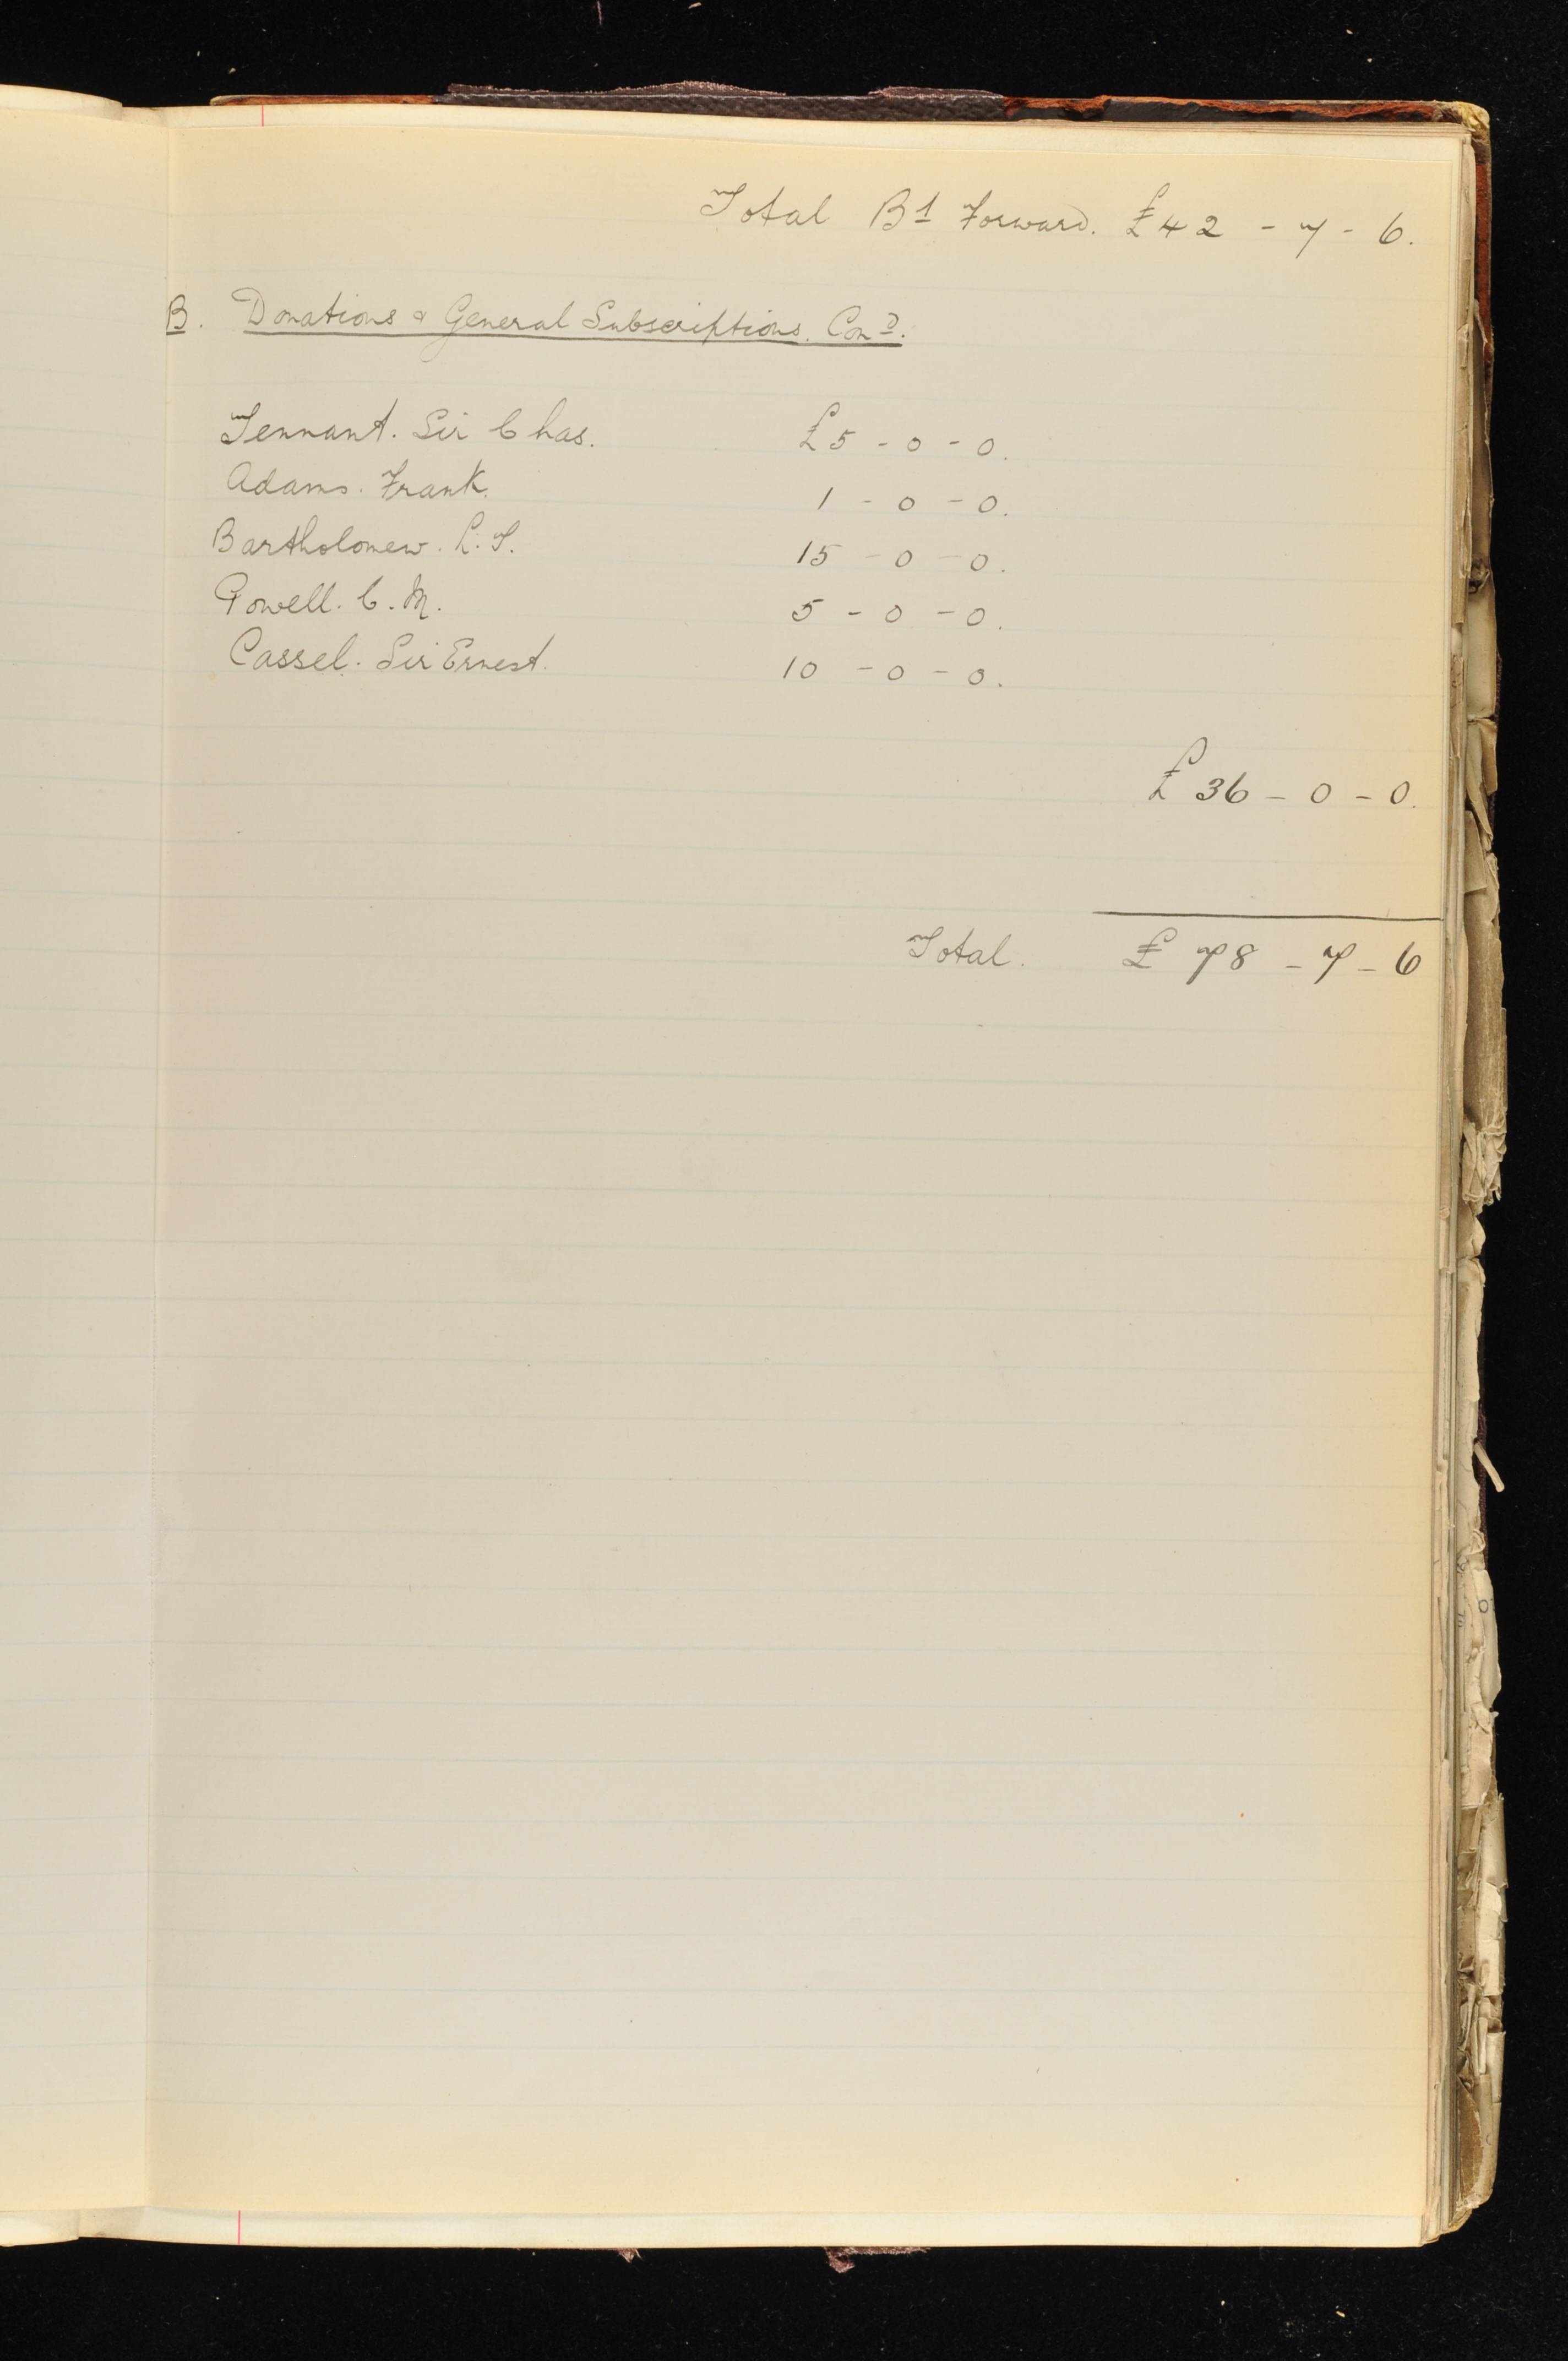 Total Bt Forward. £42 - 7 - 6.
B. Donations & General Subscriptions. Cond.
Tennant. Sir Chas. £5 - 0 - 0.
Adams. Frank. 1 - 0 - 0.
Bartholomew. C. T. 15 - 0 - 0.
Powell. C. M. 5 - 0 - 0.
Cassel. Sir Ernest. 10 - 0 - 0.
£ 36 - 0 - 0.
Total. £ 78 - 7 - 6